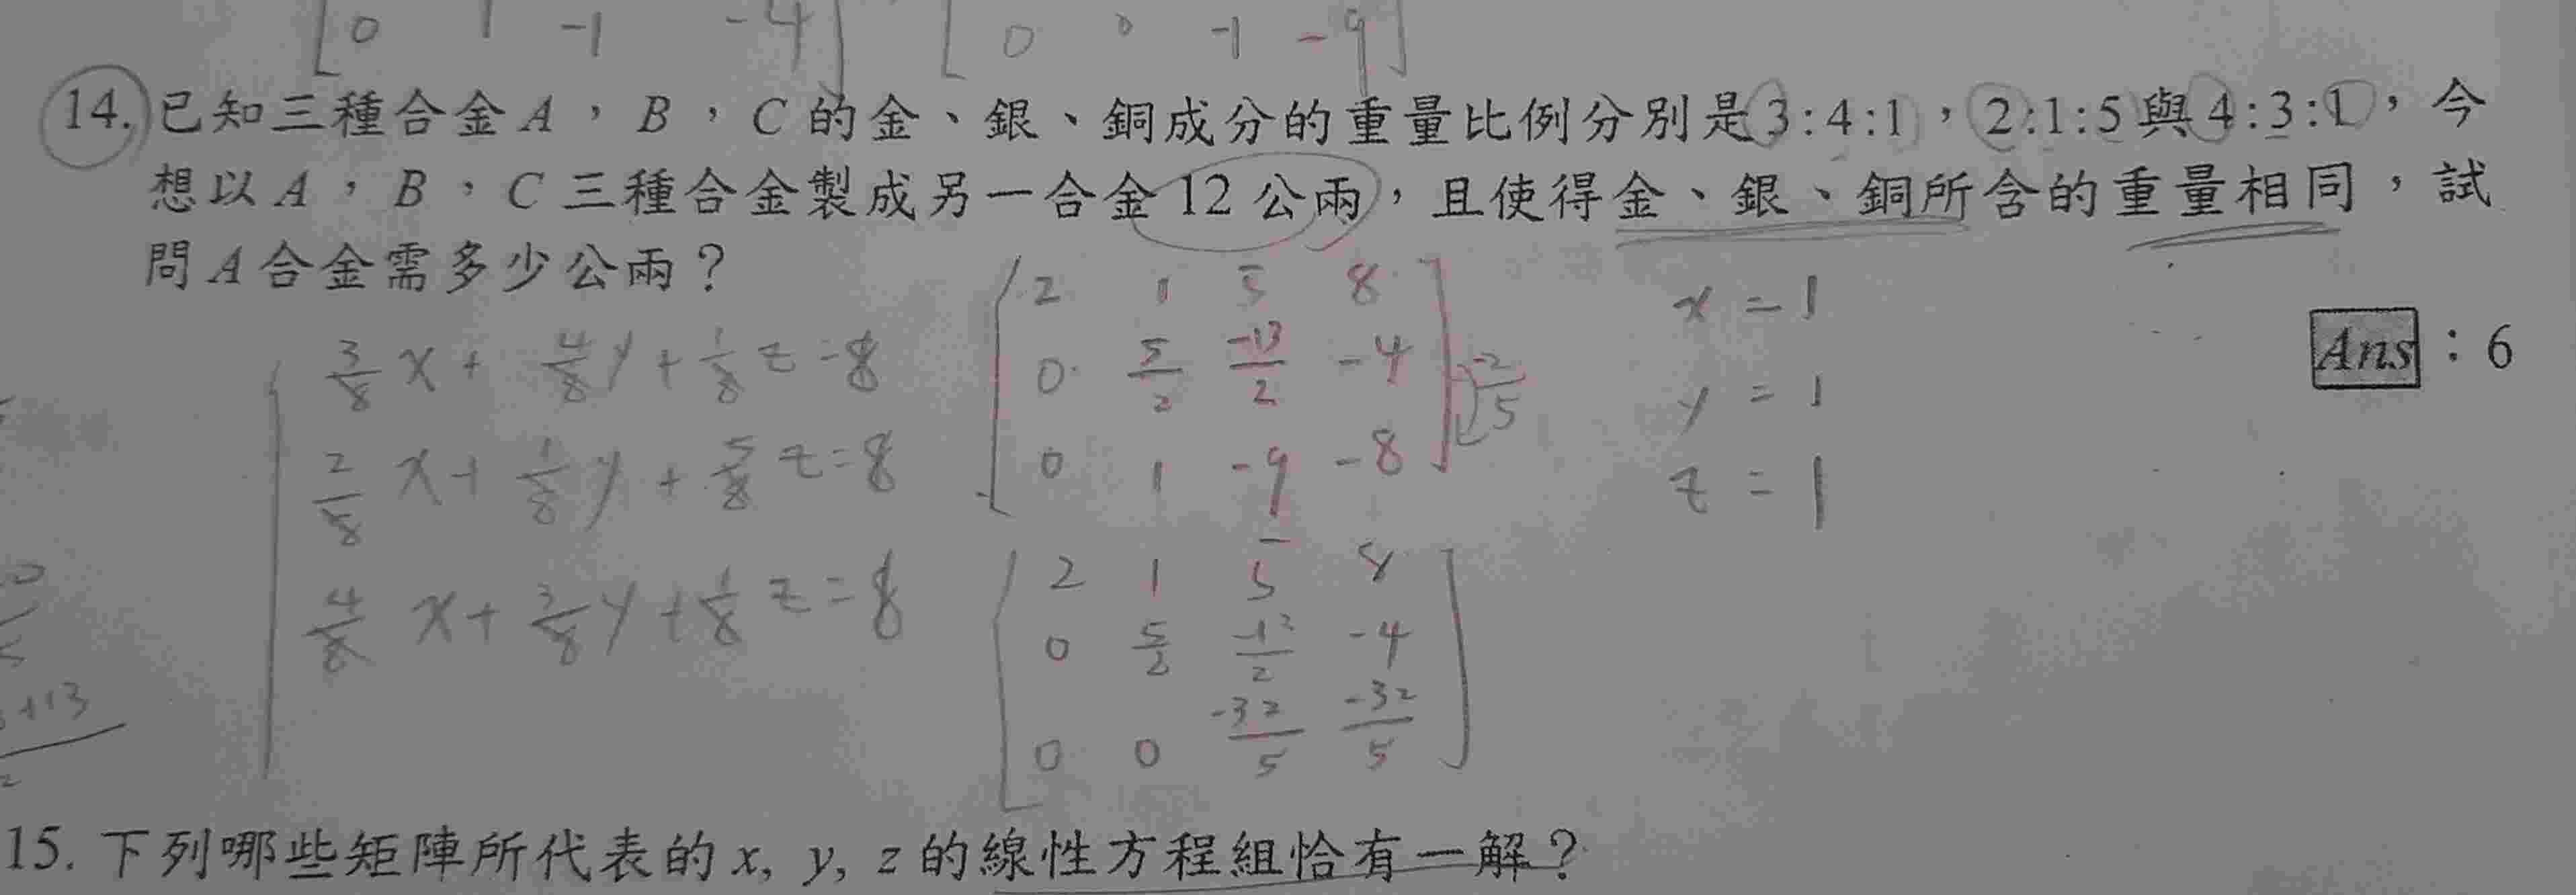 0 1 -1 -4 0 0 -1 -9
14. 已知三種合金A，B，C的金、銀、銅成分的重量比例分別是3:4:1，2:1:5與4:3:1，今
想以A，B，C三種合金製成另一合金12公兩，且使得金、銀、銅所含的重量相同，試
問A合金需多少公兩？
Ans：6
3/8 x + 4/8 y + 1/8 z = 8
2/8 x + 1/8 y + 5/8 z = 8
4/8 x + 3/8 y + 1/8 z = 8
2 1 5 8
0 5/2 -13/2 -4
0 1 -9 -8
-2/5
2 1 5 8
0 5/2 -13/2 -4
0 0 -32/5 -32/5
x = 1
y = 1
z = 1
+13
2
15. 下列哪些矩陣所代表的x, y, z的線性方程組恰有一解？